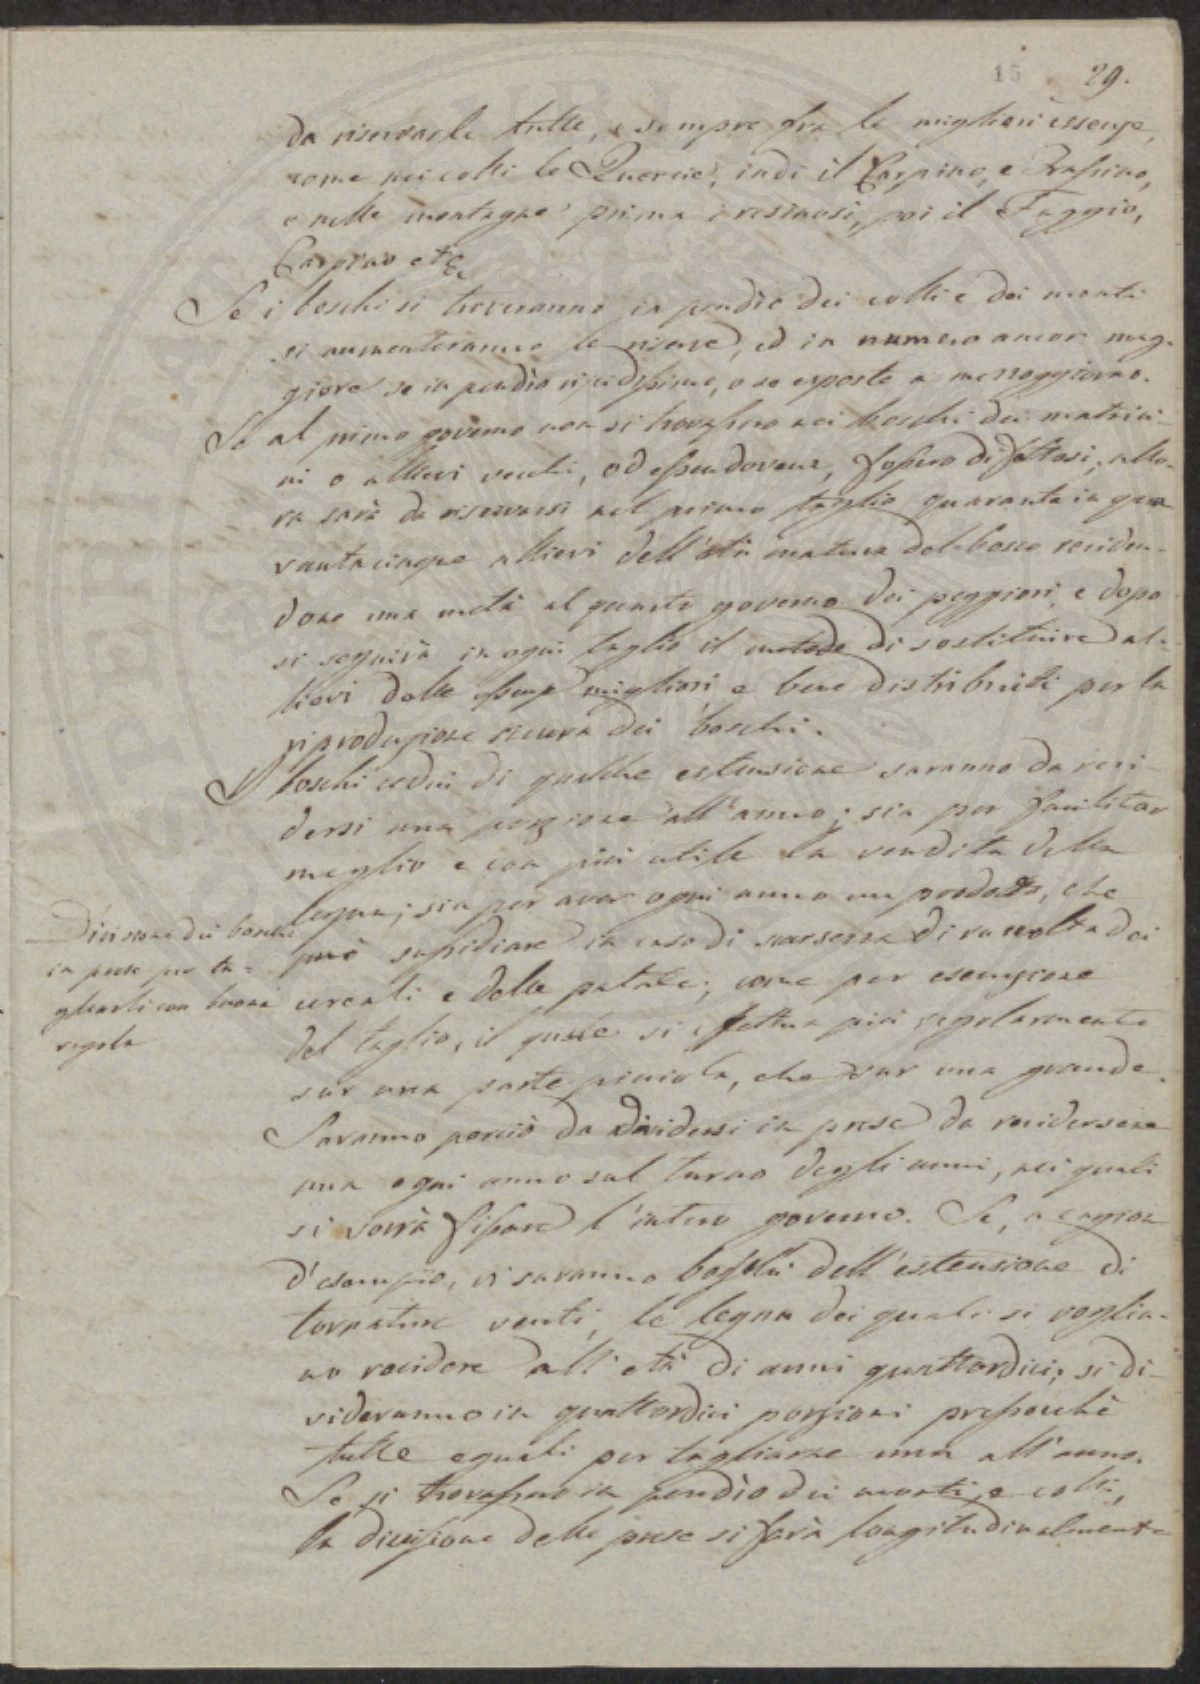 15 29.
da riservarle tutte, e sempre fra le migliori essenze,
come nei colli le Quercie, indi il Carpino, e Frassino,
e nelle montagne prima i resinosi, poi il Faggio,
Carpino etc.
Se i boschi si troveranno in pendìo dei colli e dei monti
si aumenteranno le riserve, ed in numero ancor mag-
giore se in pendìo ripidissimo, o se esposte a mezzogiorno.
Se al primo governo non si trovassero nei boschi dei matrici-
ni o allievi venti, od essendovene, fossero difettosi, allo-
ra sarà da riservarsi nel primo taglio quaranta in qua
rantacinque allieri dell'età matura del bosco reciden-
done una metà al quarto governo dei peggiori, e dopo
si seguirà in ogni taglio il metodo di sostituire al-
lievi delle essenze migliori e bene distribuiti per la
riproduzione sicura dei boschi.
I boschi cedui di qualche estensione saranno da reci-
dersi una porzione all'anno; sia per facilitar
meglio e con più utile la vendita della
legna; sia per aver ogni anno un prodotto, che
Divisione dei boschi
in prese per ta-
gliarli con buona
regola
può supidiare in caso di scarsezza di raccolta dei
cereali e delle patate; come per esempione
del taglio, il quale si effettua più regolarmente
sur una parte piccola, che sur una grande.
Saranno perciò da dividersi in prese da recidersene
una ogni anno sul turno degli anni, nei quali
si vorrà fissare l'intero governo. Se, a cagion
d'esempio, vi saranno boschi dell'estensione di
tornature venti, le legna dei quali si voglia-
no recidere all'età di anni quattordici; si di-
videranno in quattordici porzioni pressochè
tutte eguali per tagliarne una all'anno.
Se si trovassero in pendìo dei monti, e colli,
la divisione delle prese si farà longitudinalmente